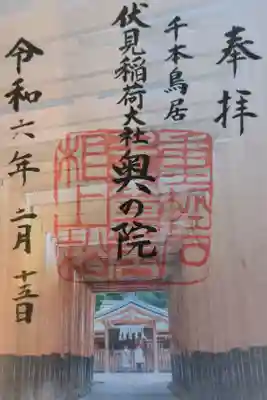 奉拝
千本鳥居
伏見稲荷大社奥の院
令和六年二月十五日